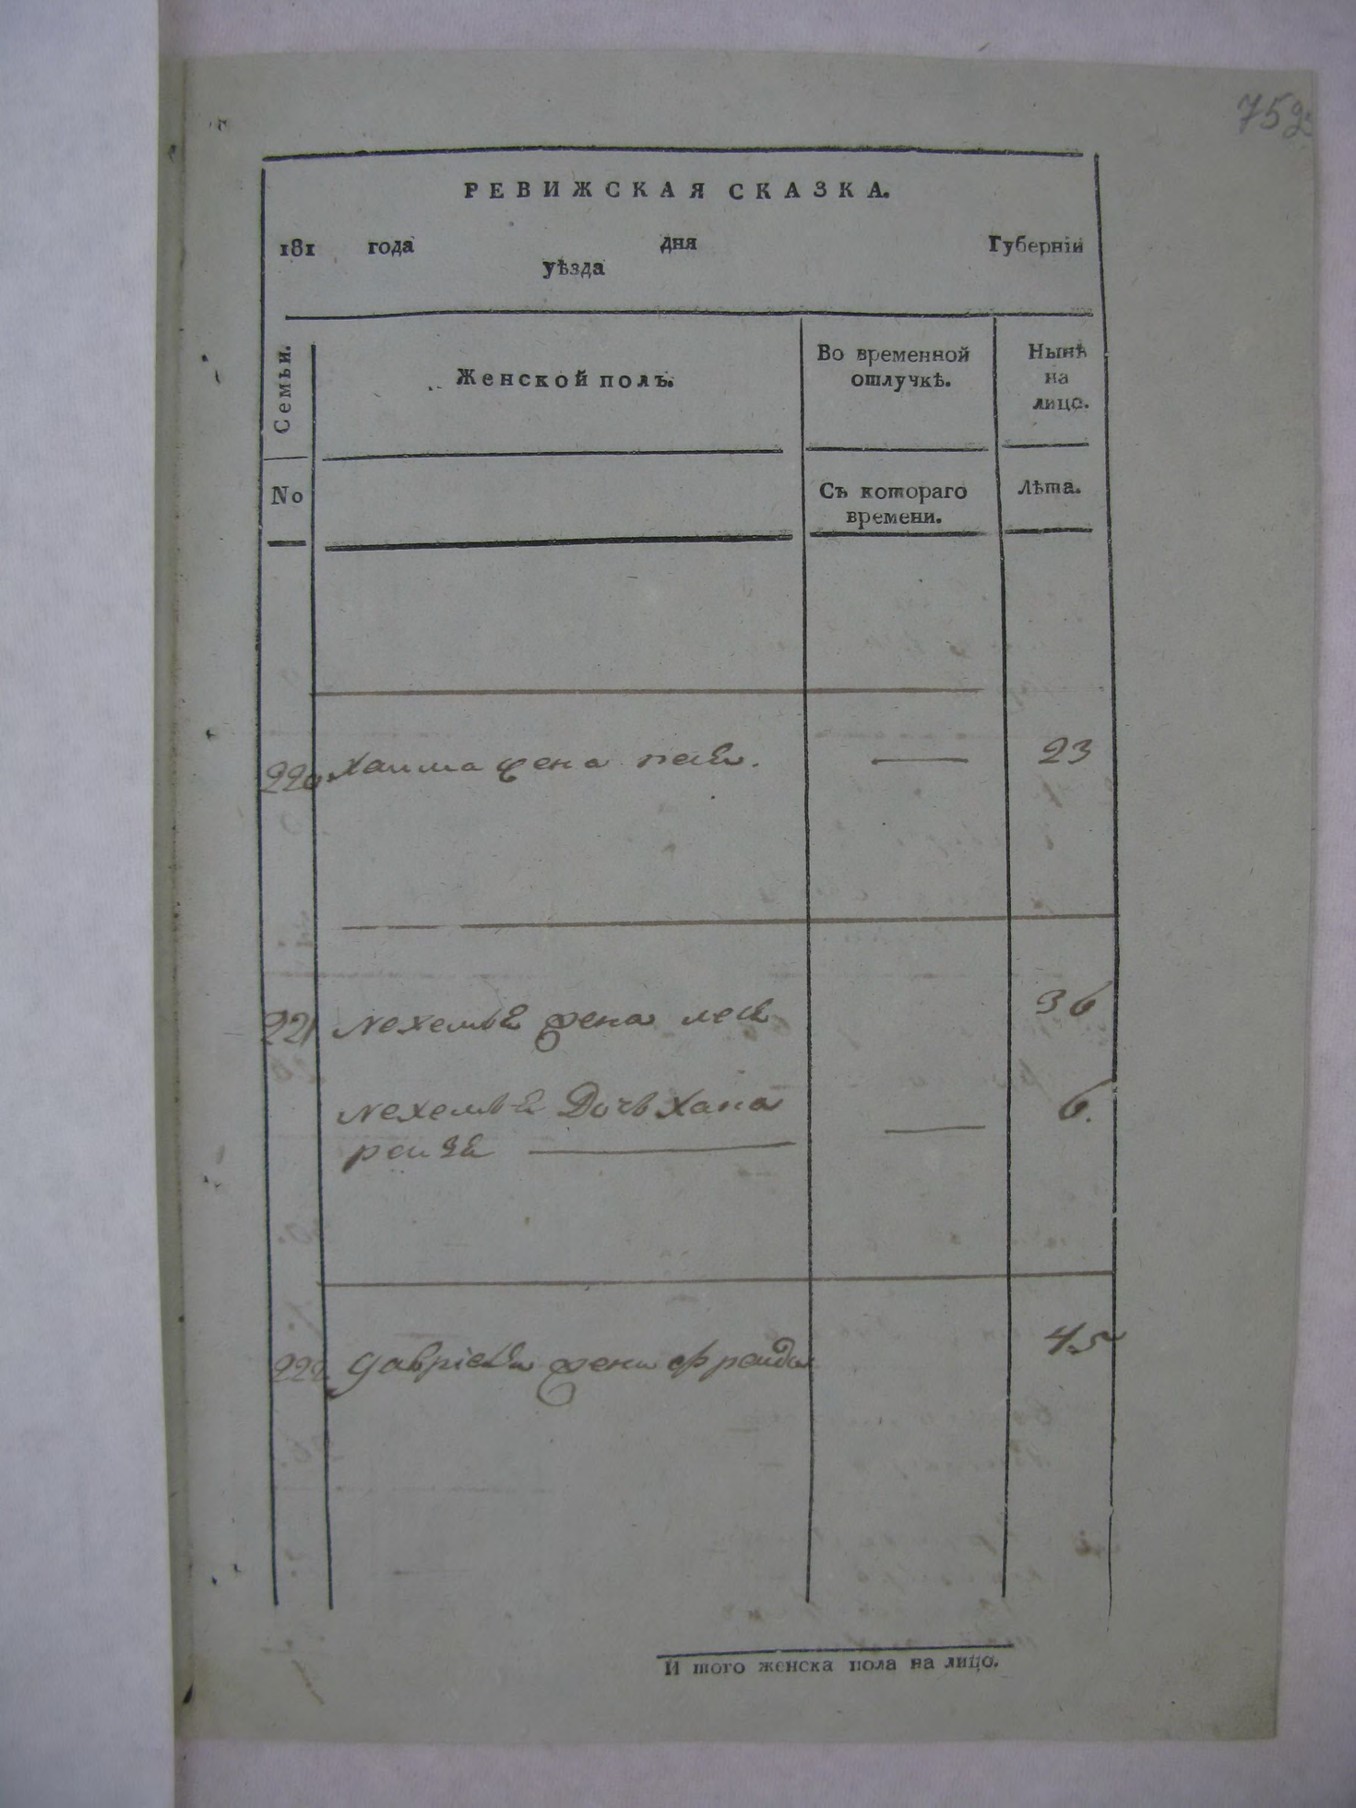 752
РЕВИЖСКАЯ СКАЗКА.
181 года дня Губернїи
уѣзда
Семьи. Женской полъ. Во временной отлучкѣ. Нынѣ на лицо.
No Съ котораго времени. Лѣта.
220 Хаима жена песя. — 23
221 Мехемье жена лея 36
Мехемье Дочь Хана 6.
реизе
222 Габриеля жена Фреида 45
И того женска пола на лицо.